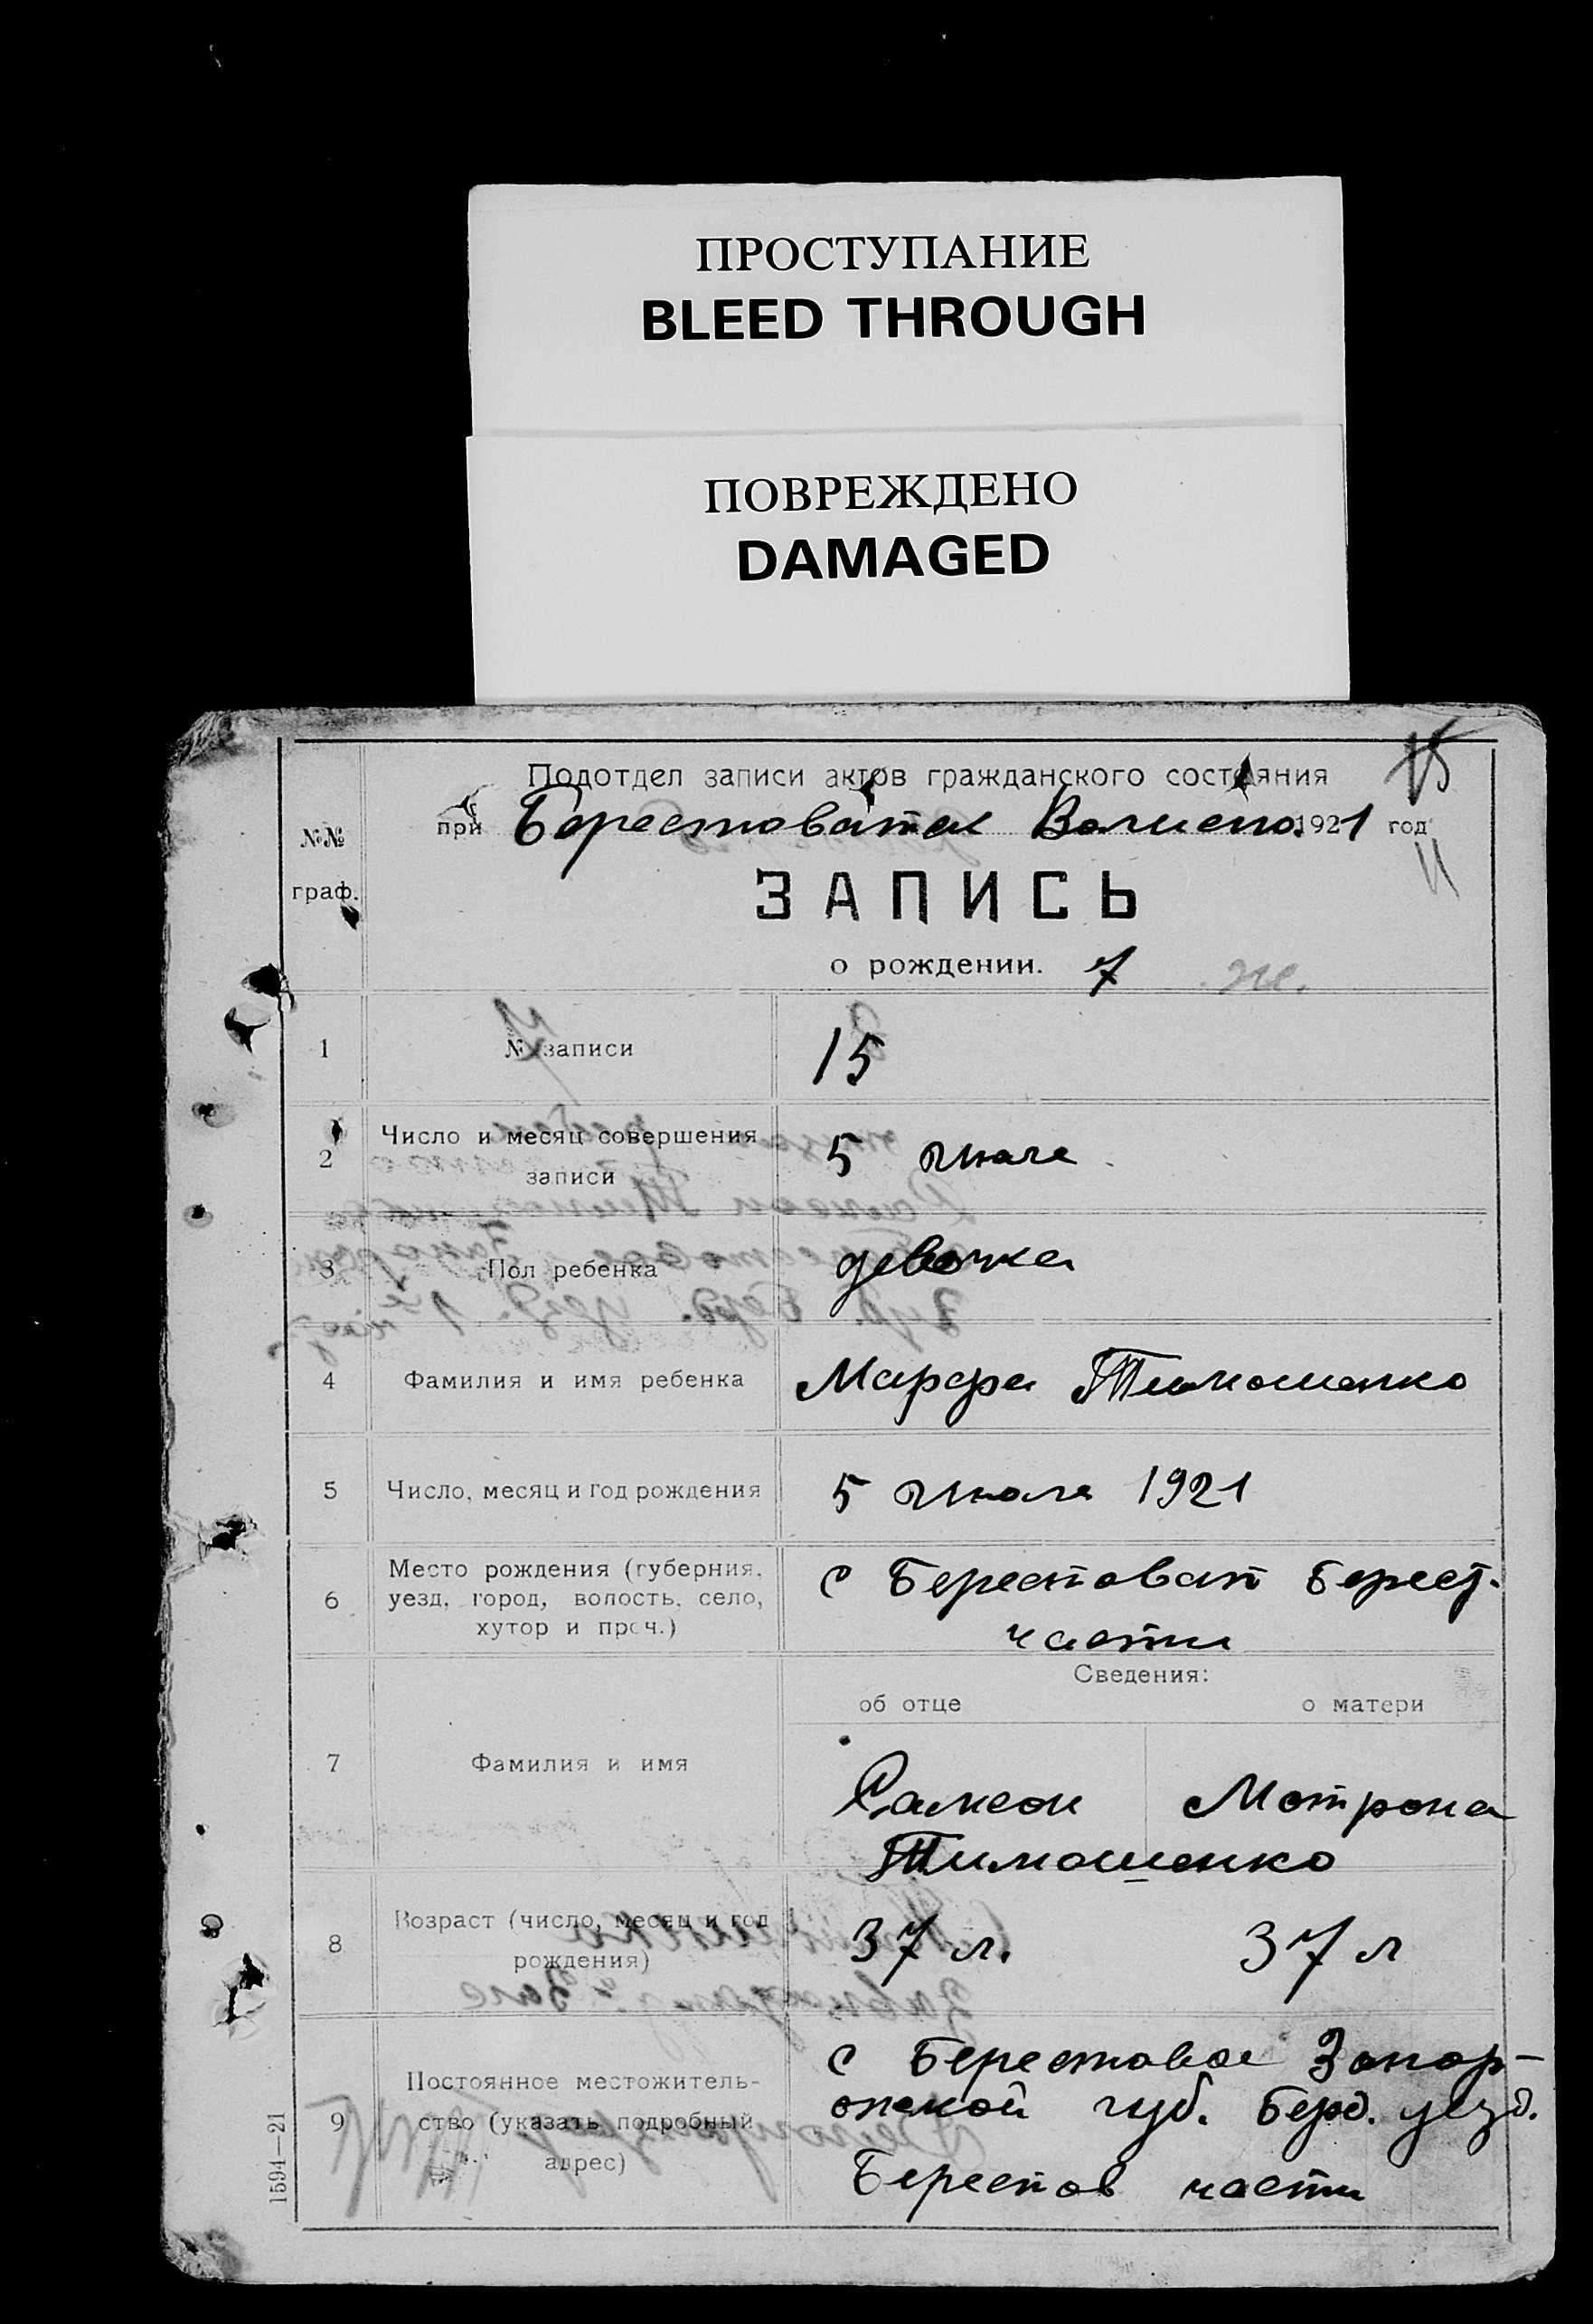 ПРОСТУПАНИЕ
BLEED THROUGH
ПОВРЕЖДЕНО
DAMAGED
15
Подотдел записи актов гражданского состояния
при Берестоватск 1921 год
№№ граф.
ЗАПИСЬ
о рождении. 7 ж.
1 № записи 15
2 Число и месяц совершения записи 5 июля
3 Пол ребенка девочка
4 Фамилия и имя ребенка Марфа Тимошенко
5 Число, месяц и год рождения 5 июля 1921
6 Место рождения (губерния, уезд, город, волость, село, хутор и проч.) с Берестоват Берест.
части
Сведения:
об отце о матери
7 Фамилия и имя
Самсон Мотрона
Тимошенко
8 Возраст (число, месяц и год рождения) 37 л. 37 л
9 Постоянное местожитель-
ство (указать подробный
адрес)
с Берестовое Запор-
ожской губ. Берд. уезд.
Берестов части
1594—21